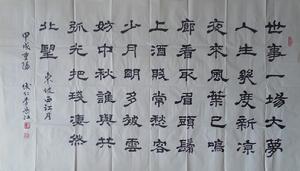 世事一場大夢
人生幾度新涼
夜來風葉已鳴
廊看取眉頭鬢
上酒賤常愁客
少月明多被雲
妨中秋誰與共
孤光把琖淒然
北朢
東坡西江月
甲戌重陽